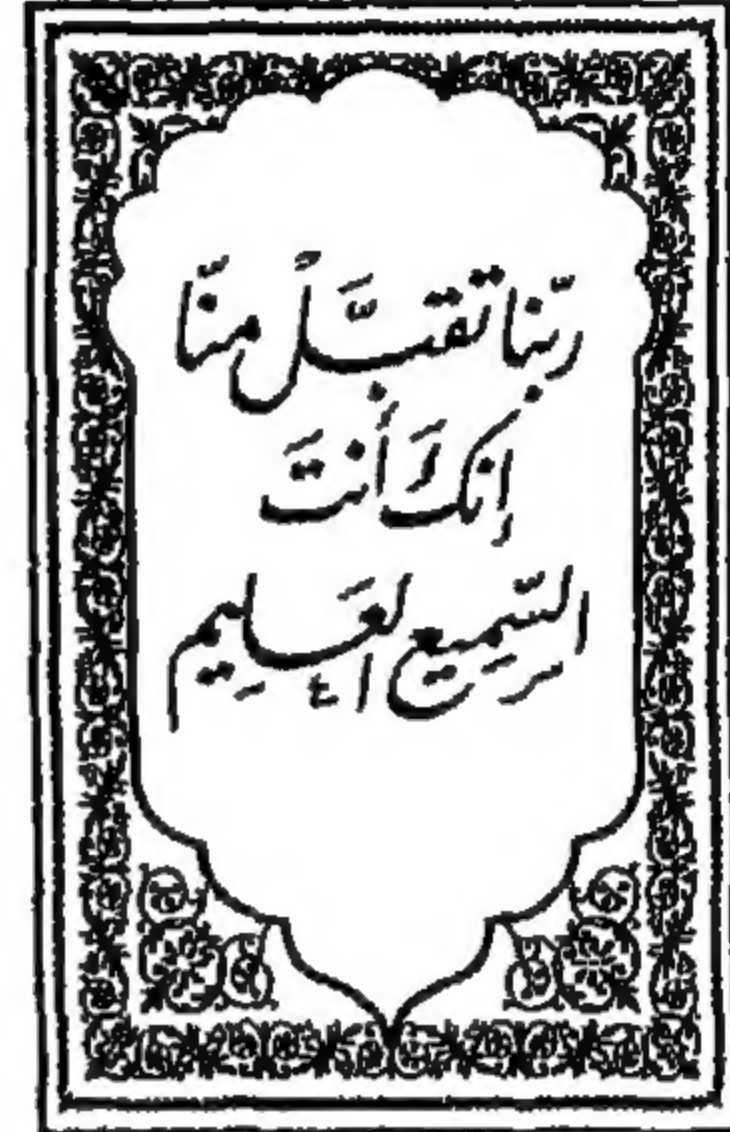 ربّنا تقبَّلْ منّا
إِنكَ أَنتَ
السّمِيع العَلِيم